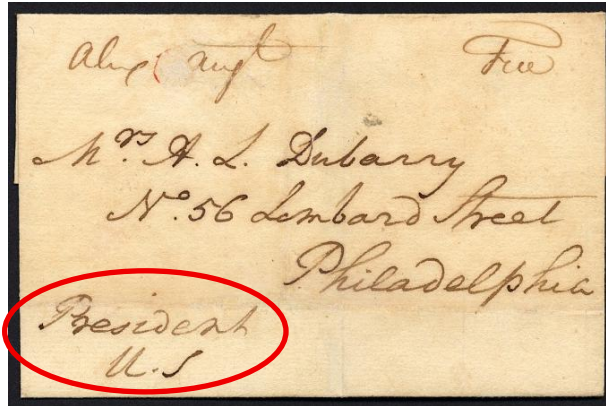 Alex Augt Free
Mrs A. L. Dubarry
No. 56 Lombard Street
Philadelphia
President
U.S